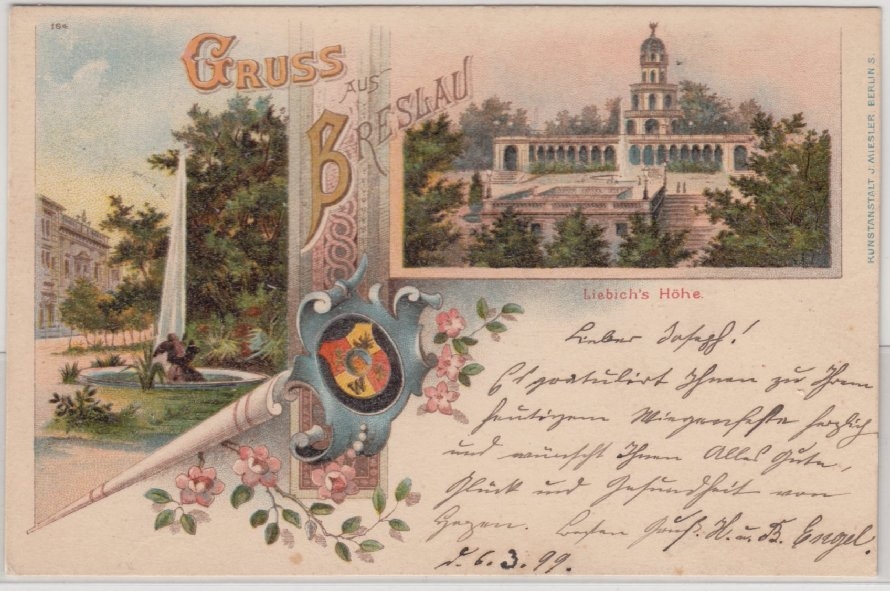 164
GRUSS
AUS
BRESLAU
KUNSTANSTALT J. MIESLER, BERLIN S.
Liebich's Höhe.
W
Lieber Joseph!
Es gratulirt Ihnen zu Ihrem
heutigem Wiegenfeste herzlich
und wünscht Ihnen Alles Gute,
Glück und Gesundheit von
Herzen. Besten Gruß. H. u. B. Engel.
d. 6.3.99.